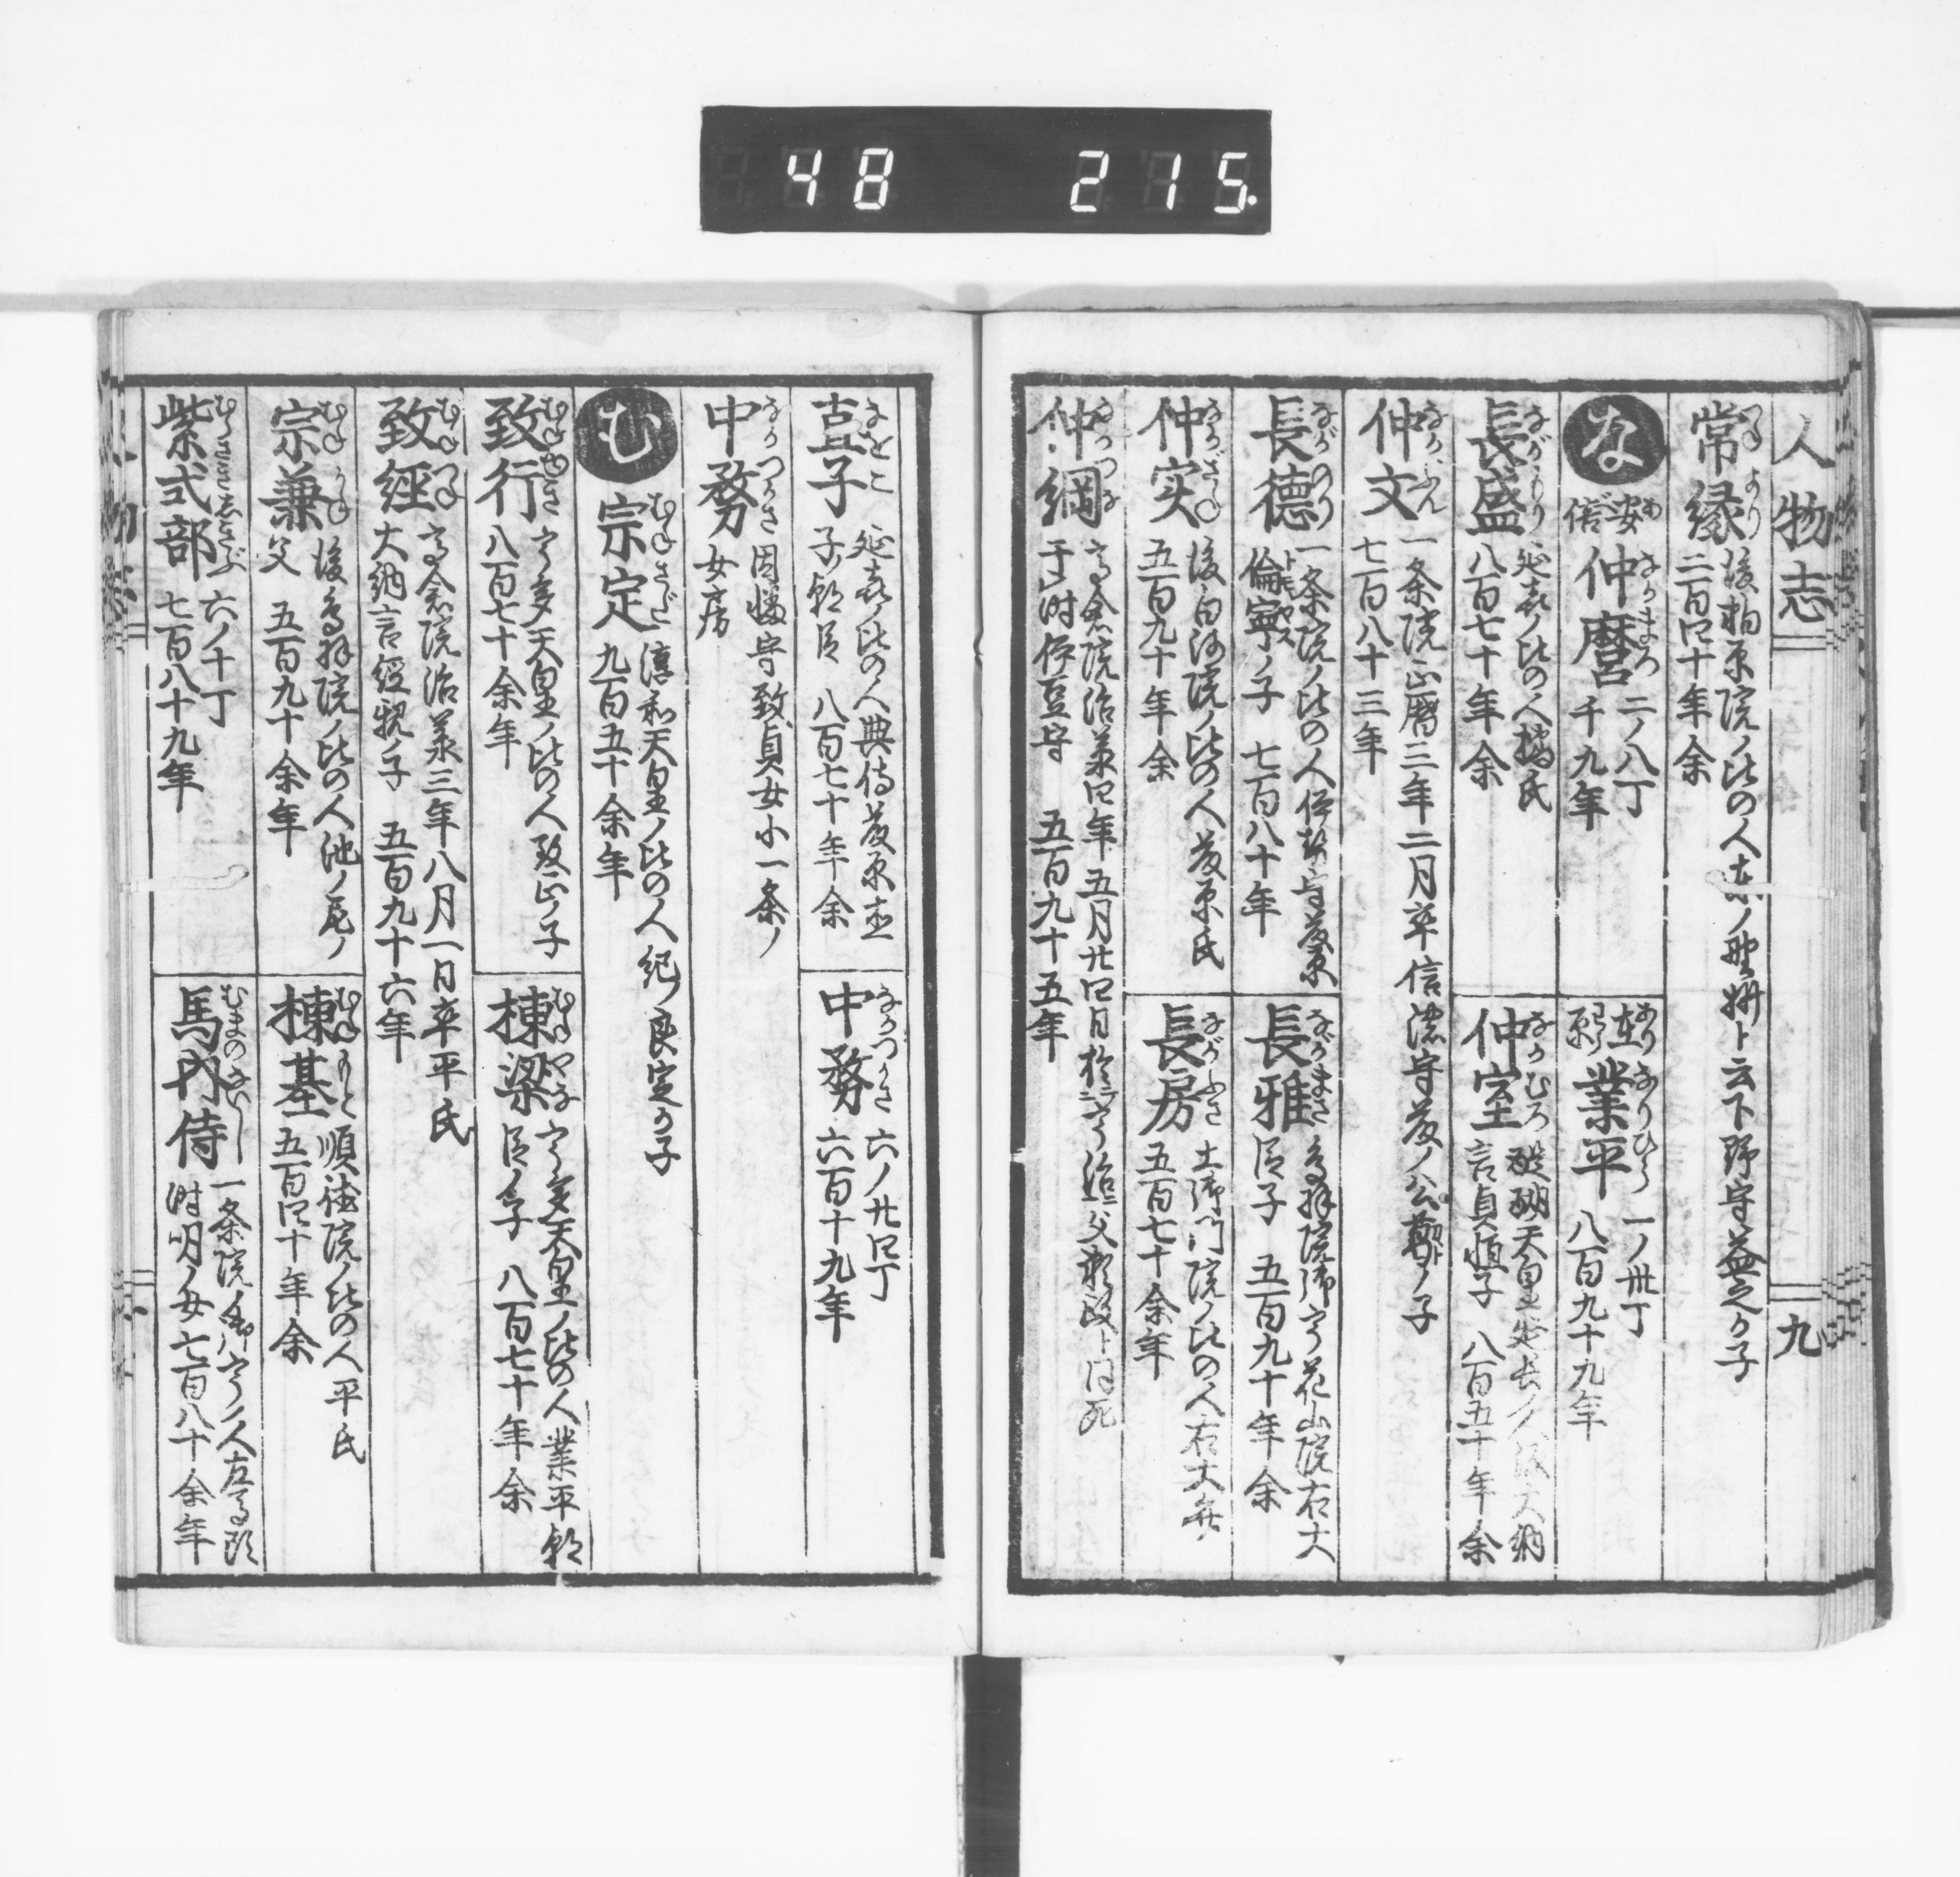 48 215
人物志
九
常縁 つねより
後柏原院ノ比の人東ノ野州ト云下野守益之か子
二百四十年余
な
安倍 仲麿 なかまろ
二ノ八丁
千九年
在原 業平 ありなりひら
一ノ卅丁
八百九十九年
長盛 ながもり
延喜ノ比の人橘氏
八百七十年余
仲室 なかむろ
醍醐天皇延長ノ人大納
言貞恒子 八百五十年余
仲文 なかぶん
一条院正暦三年二月卒信濃守藤ノ公尊ノ子
七百八十三年
長徳 ながのり
一条院ノ比の人伊勢守藤原
倫寧ノ子 七百八十年
長雅 ながまさ
鳥羽院御宇花山院右大
臣子 五百九十年余
仲実 なかざね
後白河院ノ比の人藤原氏
五百九十年余
長房 ながふさ
土御門院ノ比の人右大弁
五百七十余年
仲綱 なかつな
高倉院治承四年五月廿四日於宇治父頼政ト同死
于時伊豆守 五百九十五年
直子 なをこ
延喜ノ比の人典侍藤原直
子朝臣 八百七十年余
中務 なかつかさ
六ノ廿四丁
六百十九年
中務 なかつかさ
因幡守致貞女小一条ノ
女房
む
宗定 むねさだ
淳和天皇ノ比の人紀ノ良定か子
九百五十余年
致行 むねゆき
宇多天皇ノ比の人致正ノ子
八百七十余年
棟梁 むねやな
宇多天皇ノ比の人業平朝
臣ノ子 八百七十年余
致經 むねつね
高倉院治承三年八月一日卒平氏
大納言經親ノ子 五百九十六年
宗兼 むねかね
後鳥羽院ノ比の人池ノ尼ノ
父 五百九十余年
棟基 むねもと
順徳院ノ比の人平氏
五百四十年余
紫式部 むらさきしきぶ
六ノ十丁
七百八十九年
馬内侍 むまのないし
一条院ノ御宇ノ人左馬頭
時明ノ女七百八十余年